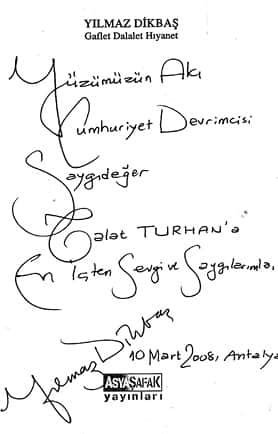 YILMAZ DİKBAŞ
Gaflet Dalalet Hıyanet
Yüzümüzün Akı
Cumhuriyet Devrimcisi
Saygıdeğer
Talat TURHAN'a
En İçten Sevgi ve Saygılarımla,
Yılmaz Dikbaş
10 Mart 2008, Antalya
ASYAŞAFAK
yayınları